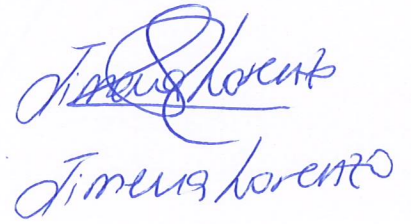 Jimena Lorenzo
Jimena Lorenzo